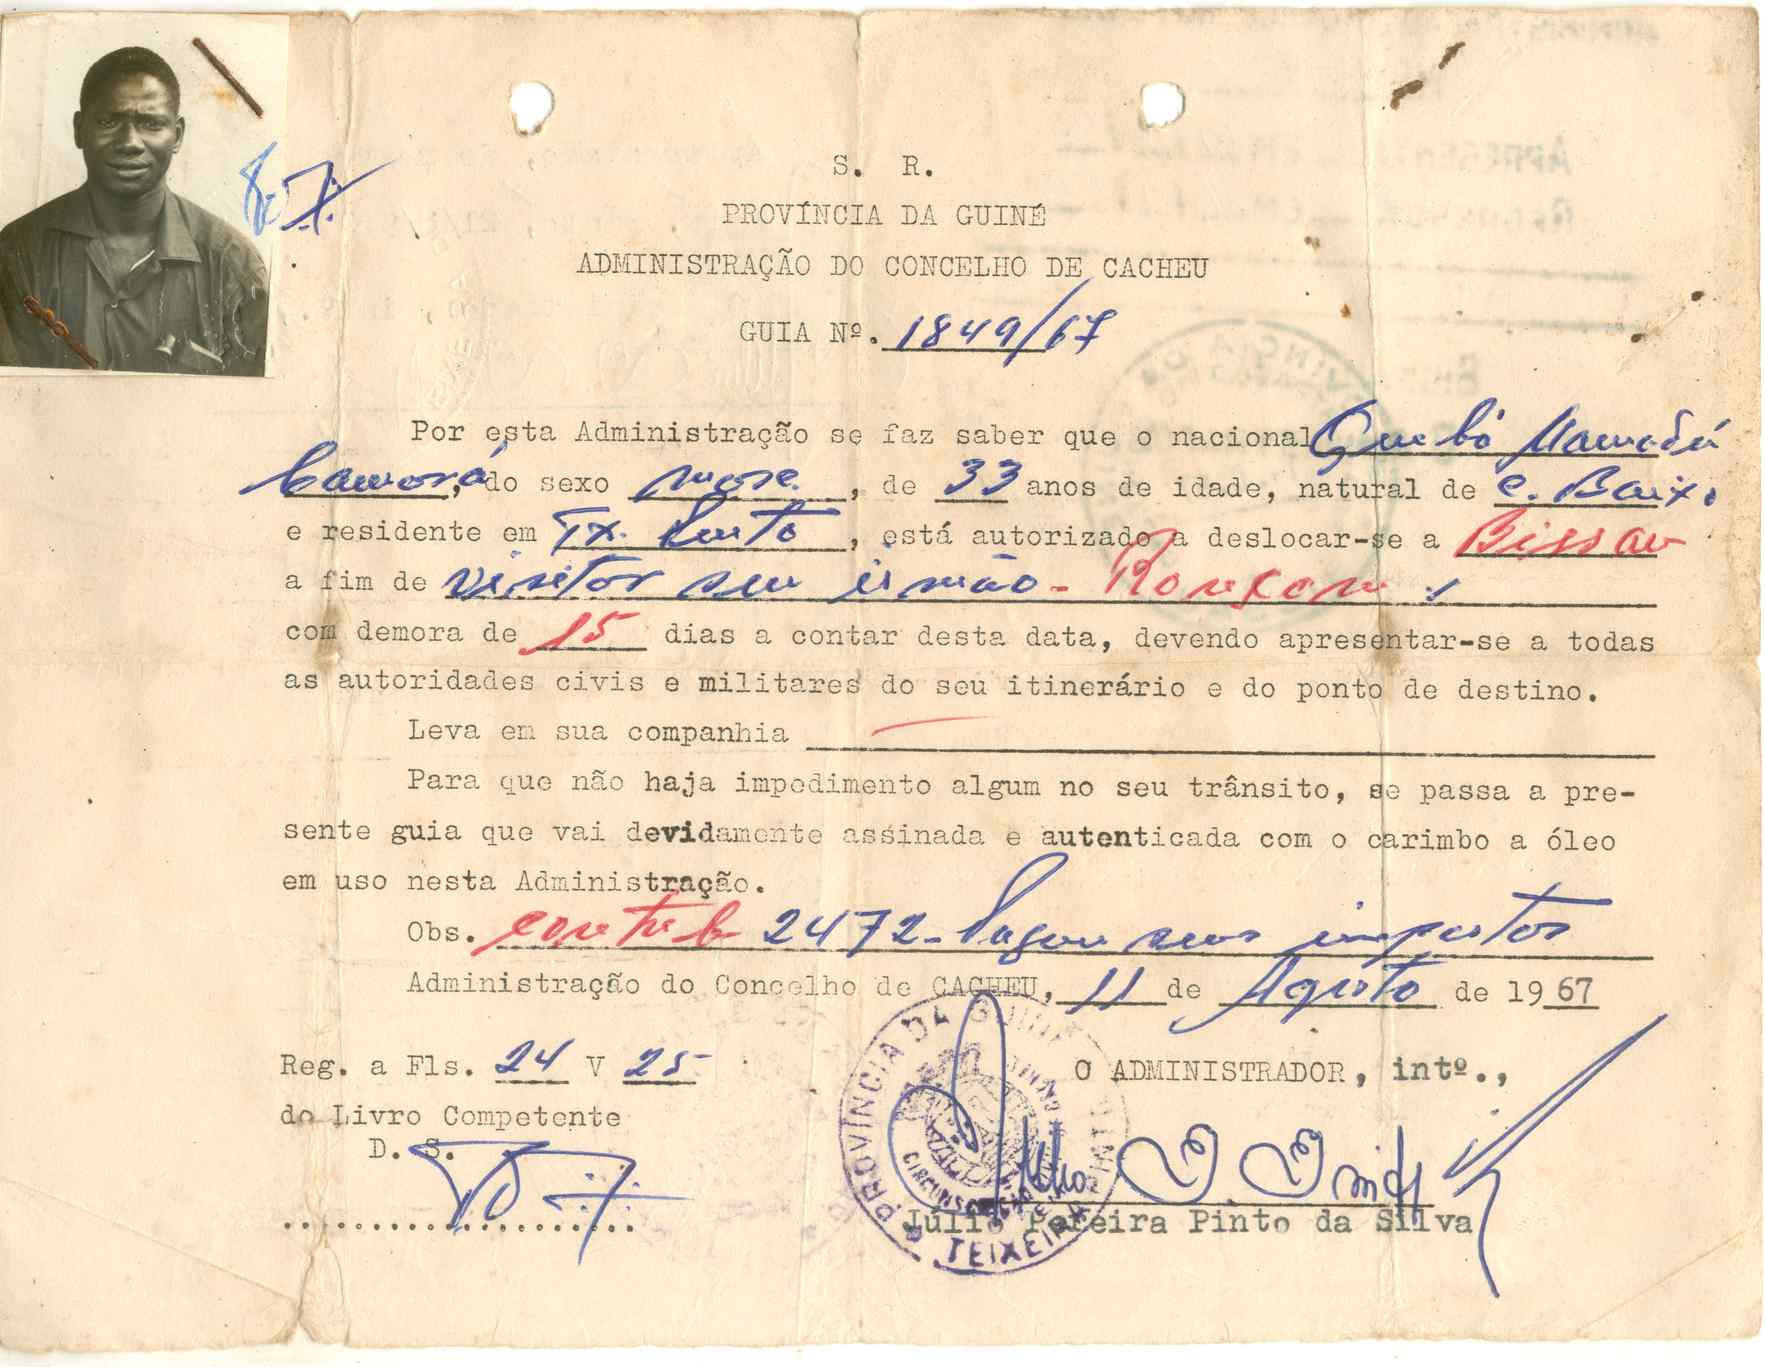 S. R.
PROVÍNCIA DA GUINÉ
ADMINISTRAÇÃO DO CONCELHO DE CACHEU
GUIA Nº. 1849/67
Por esta Administração se faz saber que o nacional Quebó Mamadú
Camará, do sexo masc., de 33 anos de idade, natural de C. Baixo
e residente em Tx. Pinto, está autorizado a deslocar-se a Bissau
a fim de visitar seu irmão -
com demora de 15 dias a contar desta data, devendo apresentar-se a todas
as autoridades civis e militares do seu itinerário e do ponto de destino.
Leva em sua companhia
Para que não haja impedimento algum no seu trânsito, se passa a pre-
sente guia que vai devidamente assinada e autenticada com o carimbo a óleo
em uso nesta Administração.
Obs. contrib 2472 - Pagou seus impostos
Administração do Concelho de CACHEU, 11 de Agosto de 1967
Reg. a Fls. 24 V 25
O ADMINISTRADOR, intº.,
do Livro Competente
D. S.
Júlio Pereira Pinto da Silva
PROVÍNCIA DA GUINÉ
CIRCUNSCRIÇÃO
TEIXEIRA PINTO